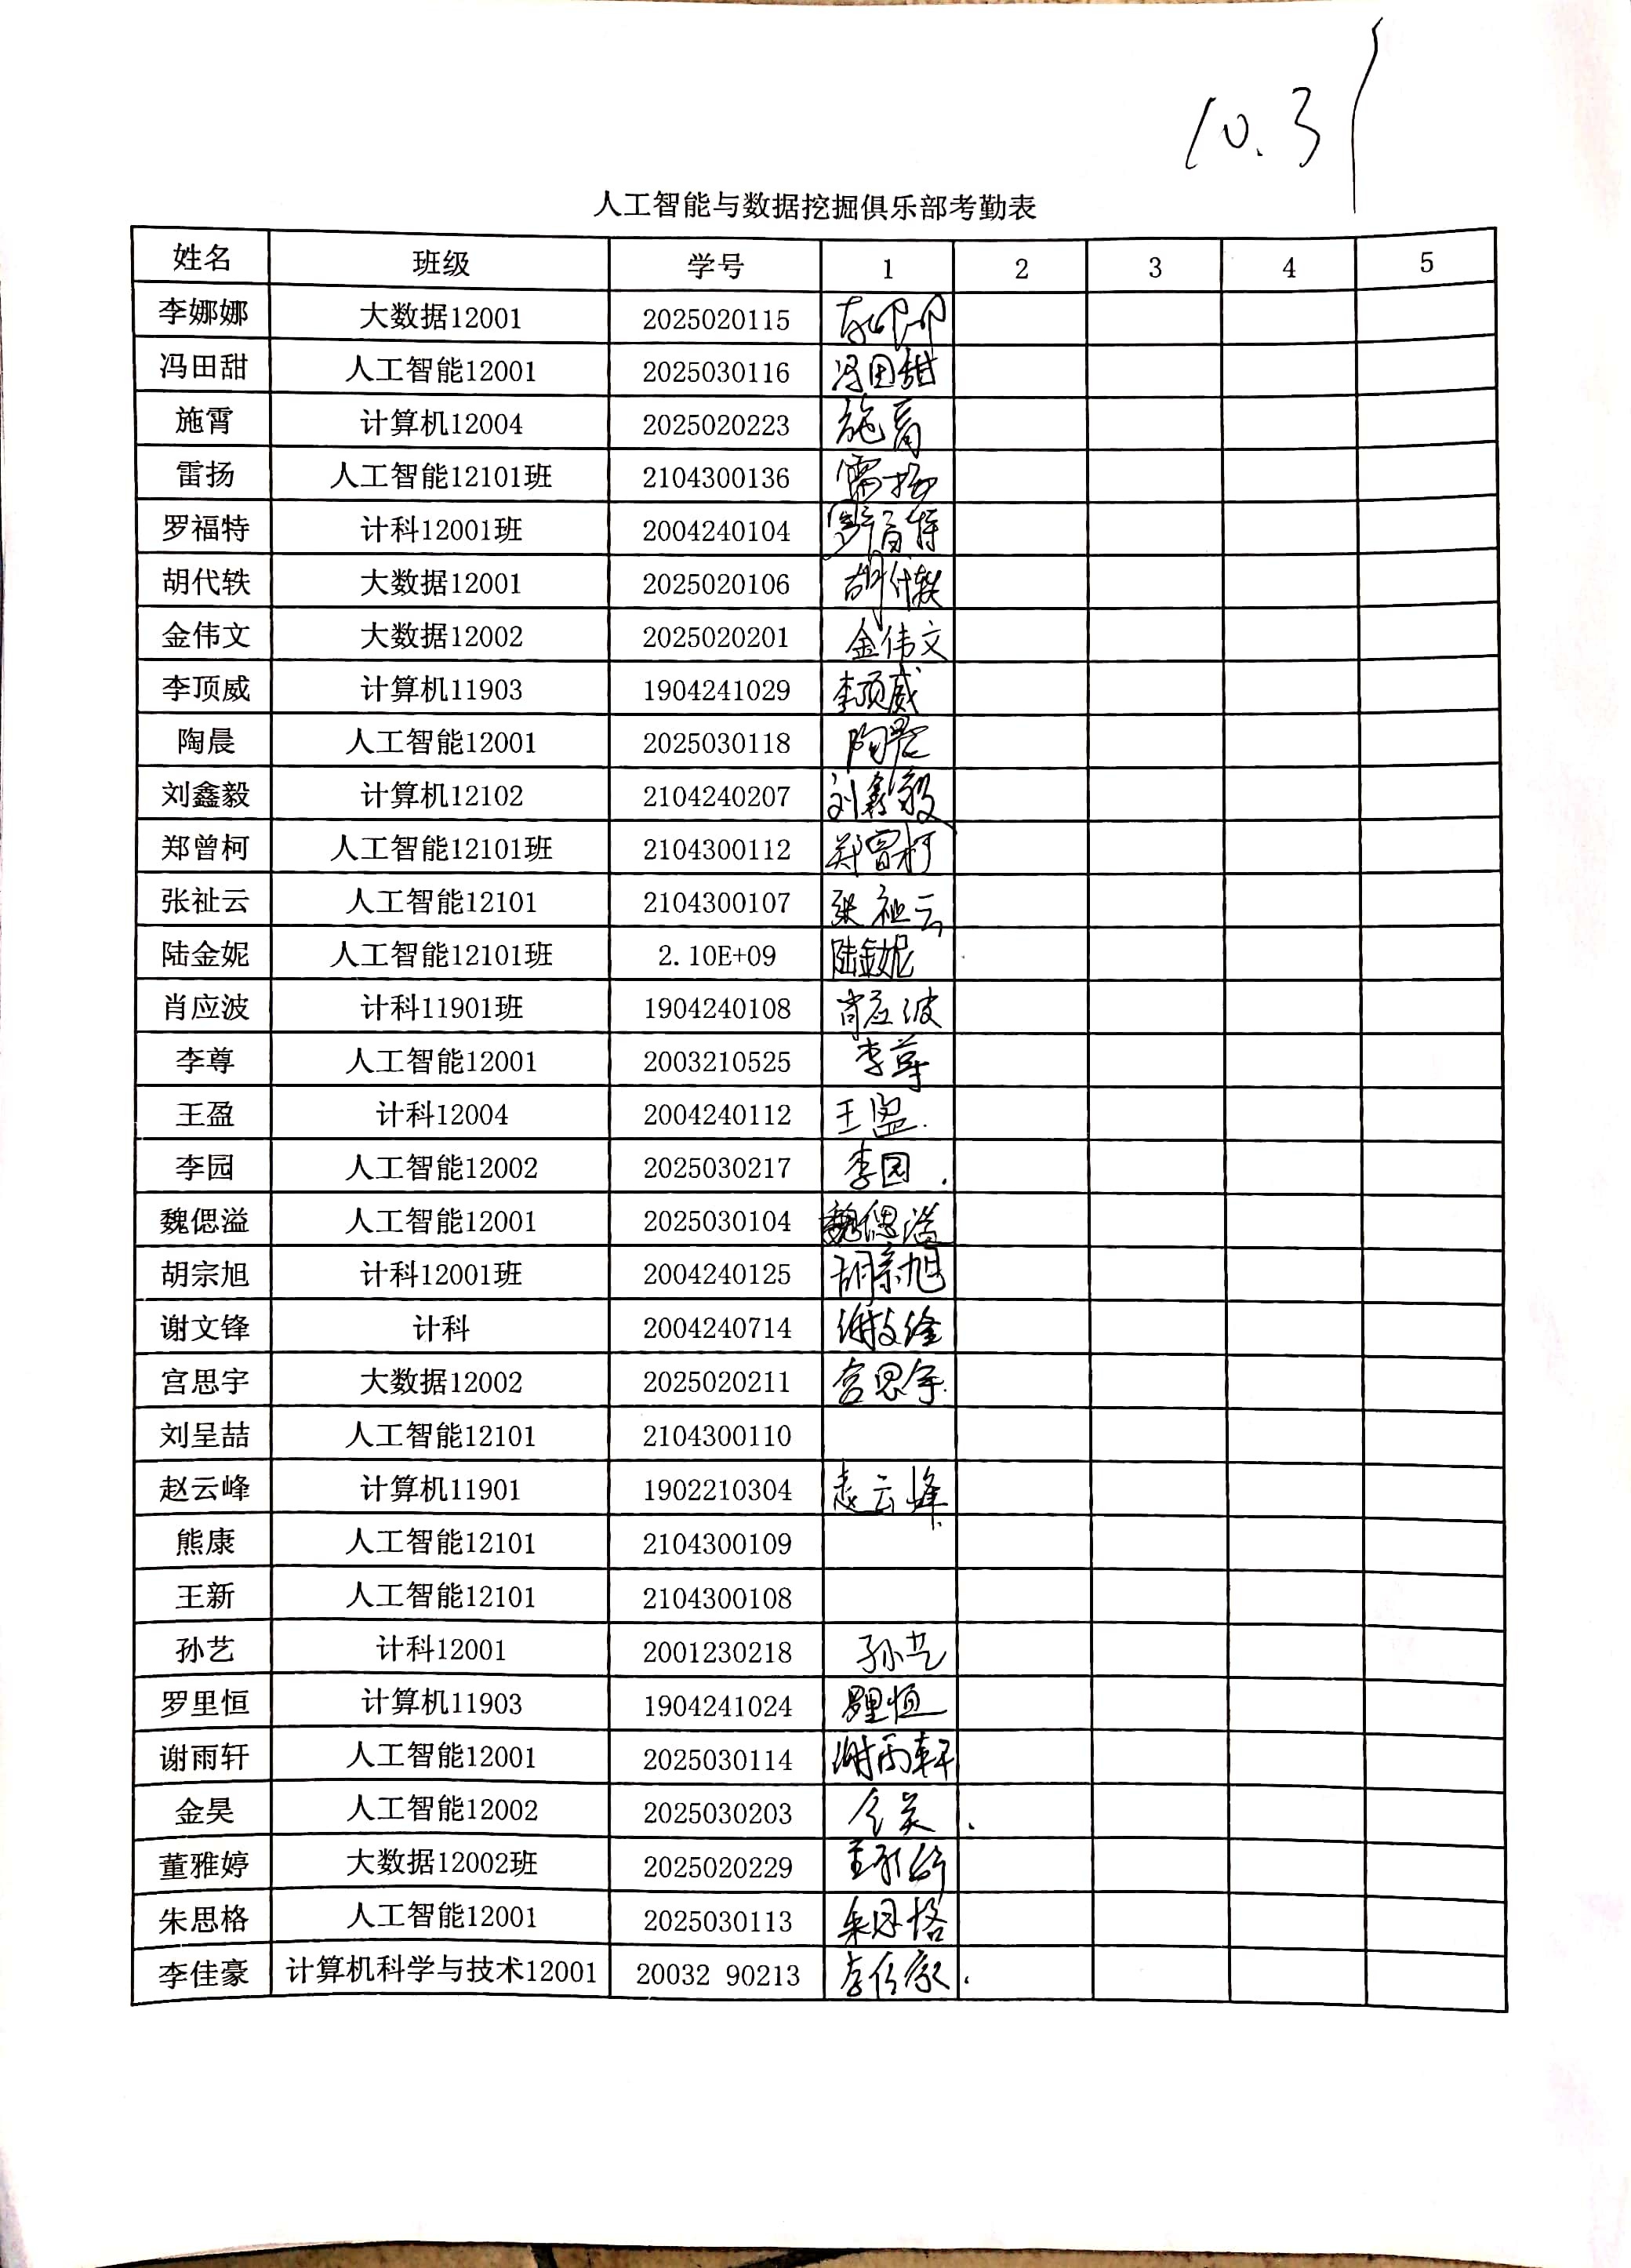 10.31
人工智能与数据挖掘俱乐部考勤表
姓名 班级 学号 1 2 3 4 5
李娜娜 大数据12001 2025020115 李娜娜
冯田甜 人工智能12001 2025030116 冯田甜
施霄 计算机12004 2025020223 施霄
雷扬 人工智能12101班 2104300136 雷扬
罗福特 计科12001班 2004240104 罗福特
胡代轶 大数据12001 2025020106 胡代轶
金伟文 大数据12002 2025020201 金伟文
李顶威 计算机11903 1904241029 李顶威
陶晨 人工智能12001 2025030118 陶晨
刘鑫毅 计算机12102 2104240207 刘鑫毅
郑曾柯 人工智能12101班 2104300112 郑曾柯
张祉云 人工智能12101 2104300107 张祉云
陆金妮 人工智能12101班 2.10E+09 陆金妮
肖应波 计科11901班 1904240108 肖应波
李尊 人工智能12001 2003210525 李尊
王盈 计科12004 2004240112 王盈.
李园 人工智能12002 2025030217 李园.
魏偲溢 人工智能12001 2025030104 魏偲溢
胡宗旭 计科12001班 2004240125 胡宗旭
谢文锋 计科 2004240714 谢文锋
宫思宇 大数据12002 2025020211 宫思宇.
刘呈喆 人工智能12101 2104300110
赵云峰 计算机11901 1902210304 赵云峰
熊康 人工智能12101 2104300109
王新 人工智能12101 2104300108
孙艺 计科12001 2001230218 孙艺
罗里恒 计算机11903 1904241024 罗里恒
谢雨轩 人工智能12001 2025030114 谢雨轩
金昊 人工智能12002 2025030203 金昊.
董雅婷 大数据12002班 2025020229 董雅婷
朱思格 人工智能12001 2025030113 朱思格
李佳豪 计算机科学与技术12001 20032 90213 李佳豪.